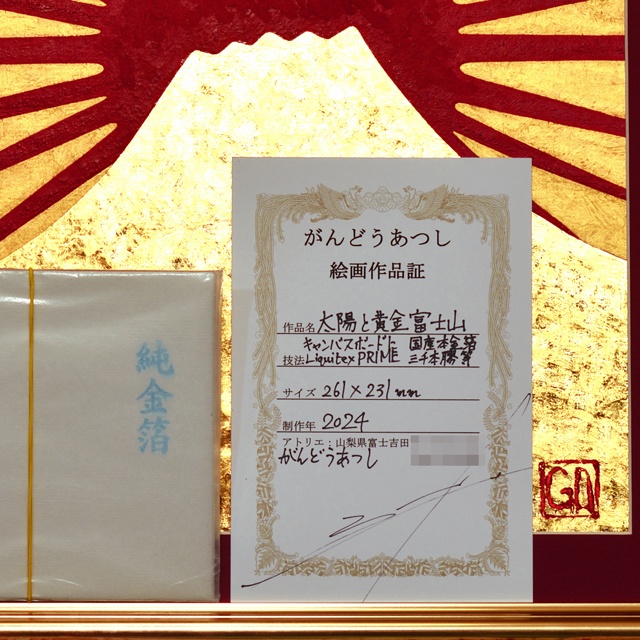 がんどうあつし
絵画作品証
作品名 太陽と黄金富士山
キャンバスボード 国産本金箔
技法 Liquitex PRIME 三千本膠
サイズ 261×231mm
制作年 2024
アトリエ:山梨県富士吉田
がんどうあつし
純金箔
GA